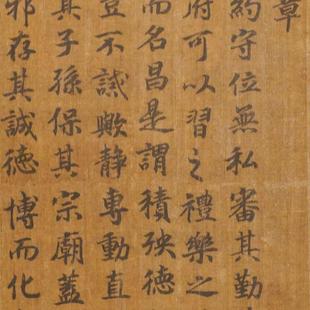 章
約守位無私審其勤
府可以習之禮樂之
而名昌是謂積殃德
豈不誡歟静專動直
其子孫保其宗廟蓋
邪存其誠德博而化